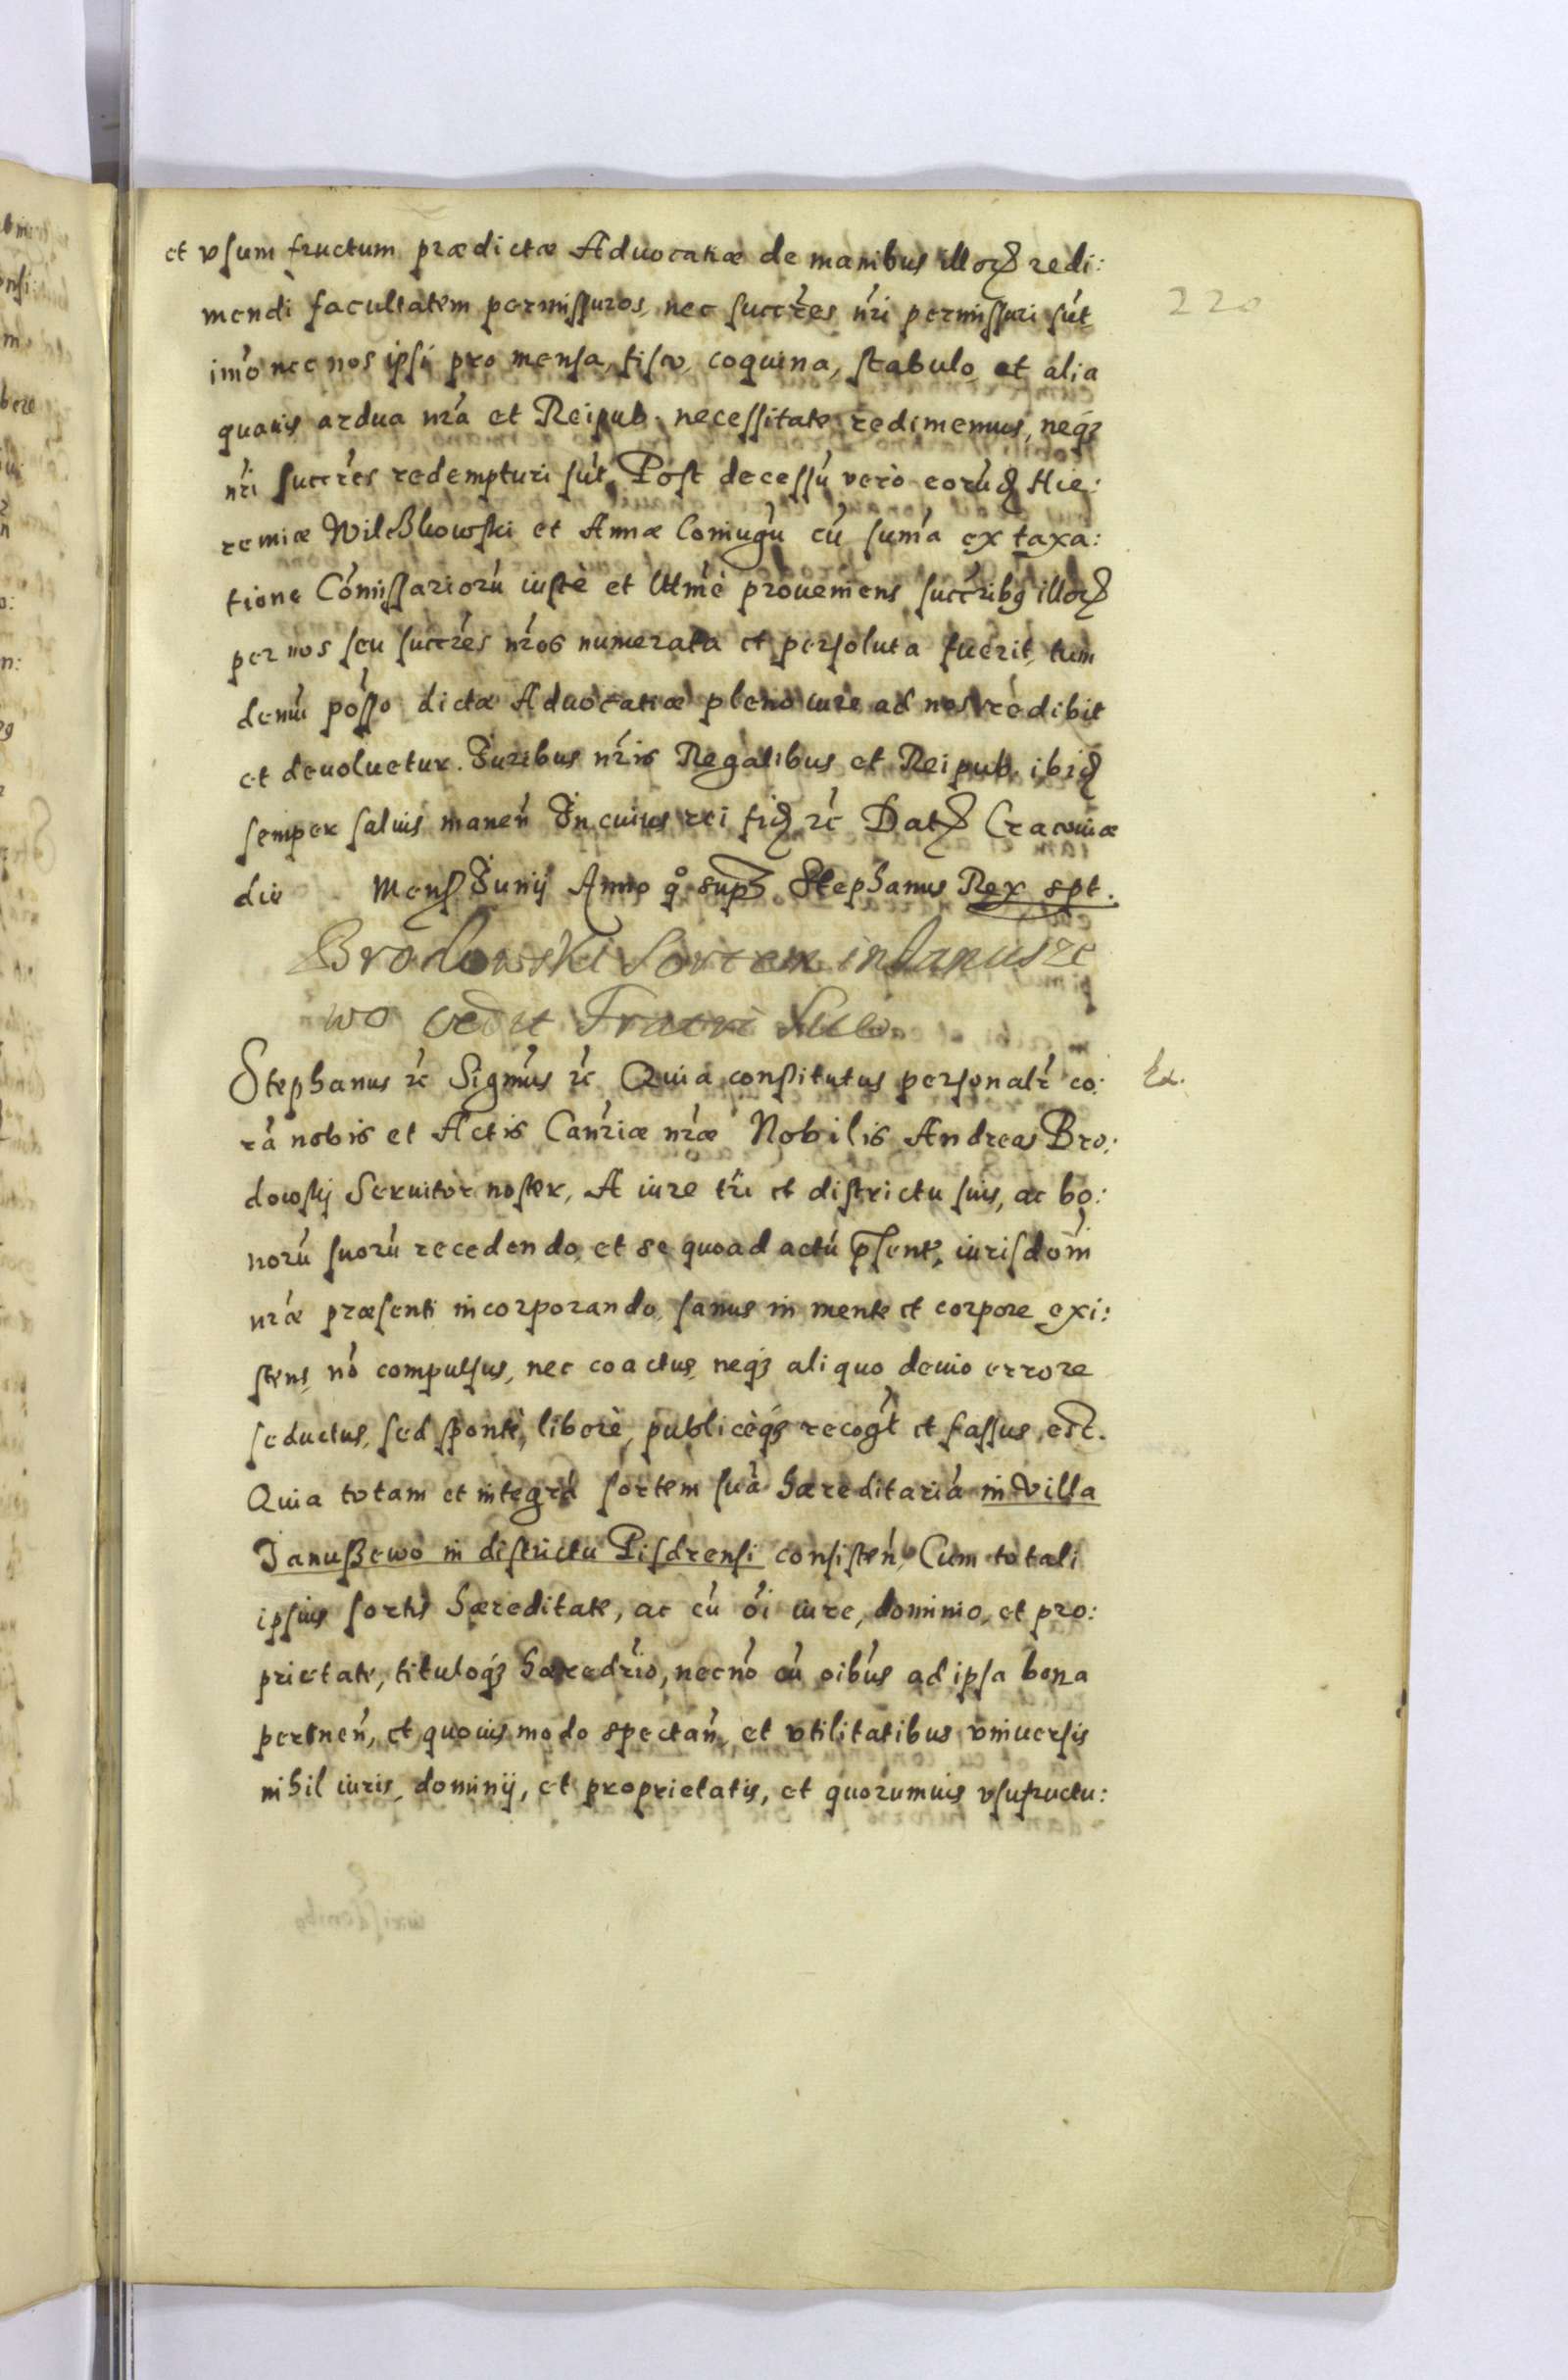 et vsum fructum prædictæ Aduocatiæ de manibus illoꝝ redi:
mendi facultatem permissuros, nec succr̃es nr̃i permissuri sũt
imò nec nos ipsi pro mensa, fisco, coquina, stabulo, et alia
quauis ardua nr̃a et Reipub. necessitate redimemus, neqꝫ
nr̃i succr̃es redempturi sũt, Post decessũ verò eorũꝺ Hie:
remiæ Wilcßkowski et Annæ Coniugũ cũ sum̃a ex taxa:
tione Com̃issariorũ iustè et ltt̃mè proueniens succr̃ibꝫ illoꝝ
per nos seu succr̃es nr̃os numerata et persoluta fuerit, tum
demũ posso dictæ Aduocatiæ pleno iure ad nos redibit
et deuoluetur. Iuribus nr̃is Regalibus et Reipub. ibiꝺ
semper saluis maneñ In cuius rei fiꝺ ꝛc̃ Datꝝ Cracouiæ
die Mensꝭ Iunij Anno qͦ supꝫ Stephanus Rex spt.
Brodowski Sortem in Janusze
wo cedit Fratri Suo
Stephanus ꝛc̃ Sigm̃us ꝛc̃ Quia constitutus personalr̃ co:
rã nobis et Actis Canr̃iæ nr̃æ Nobilis Andreas Bro:
dowskj Seruitor noster, A iure tr̃i et districtu suis, ac bo:
norũ suorũ recedendo, et se quoad actũ p̃sente, iurisdom̃
nr̃æ præsenti incorporando, sanus in mente et corpore exi:
stens, nõ compulsus, nec coactus, neqꝫ aliquo deuio errore
seductus, sed sponte, liberè, publicèqꝫ recogt̃ et fassus est.
Quia totam et integrã sortem suã hæreditariã in villa
Janußewo in districtu Pisdrensi consisteñ, Cum totali
ipsius sortis hæreditate, ac cũ õi iure, dominio, et pro:
prietate, tituloqꝫ hæredr̃io, necnõ cũ oib̃us ad ipsa bona
pertineñ, et quouis modo spectañ, et vtilitatibus vniuersis
nihil iuris, dominij, et proprietatis, et quorumuis vsufructu:
220
Ex.